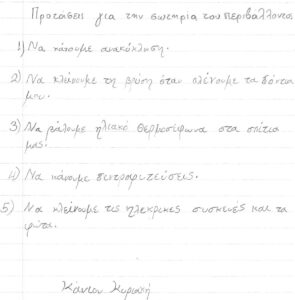 Προτάσεις για την σωτηρία του περιβάλλοντος
1) Να κάνουμε ανακύκλωση.
2) Να κλείνουμε τη βρύση όταν πλένουμε τα δόντια
μου.
3) Να βάλουμε ηλιακό θερμοσίφωνα στα σπίτια
μας.
4) Να κάνουμε δεντροφυτεύσεις.
5) Να κλείνουμε τις ηλεκρικές συσκευές και τα
φώτα.
Κάντου Κυριακή